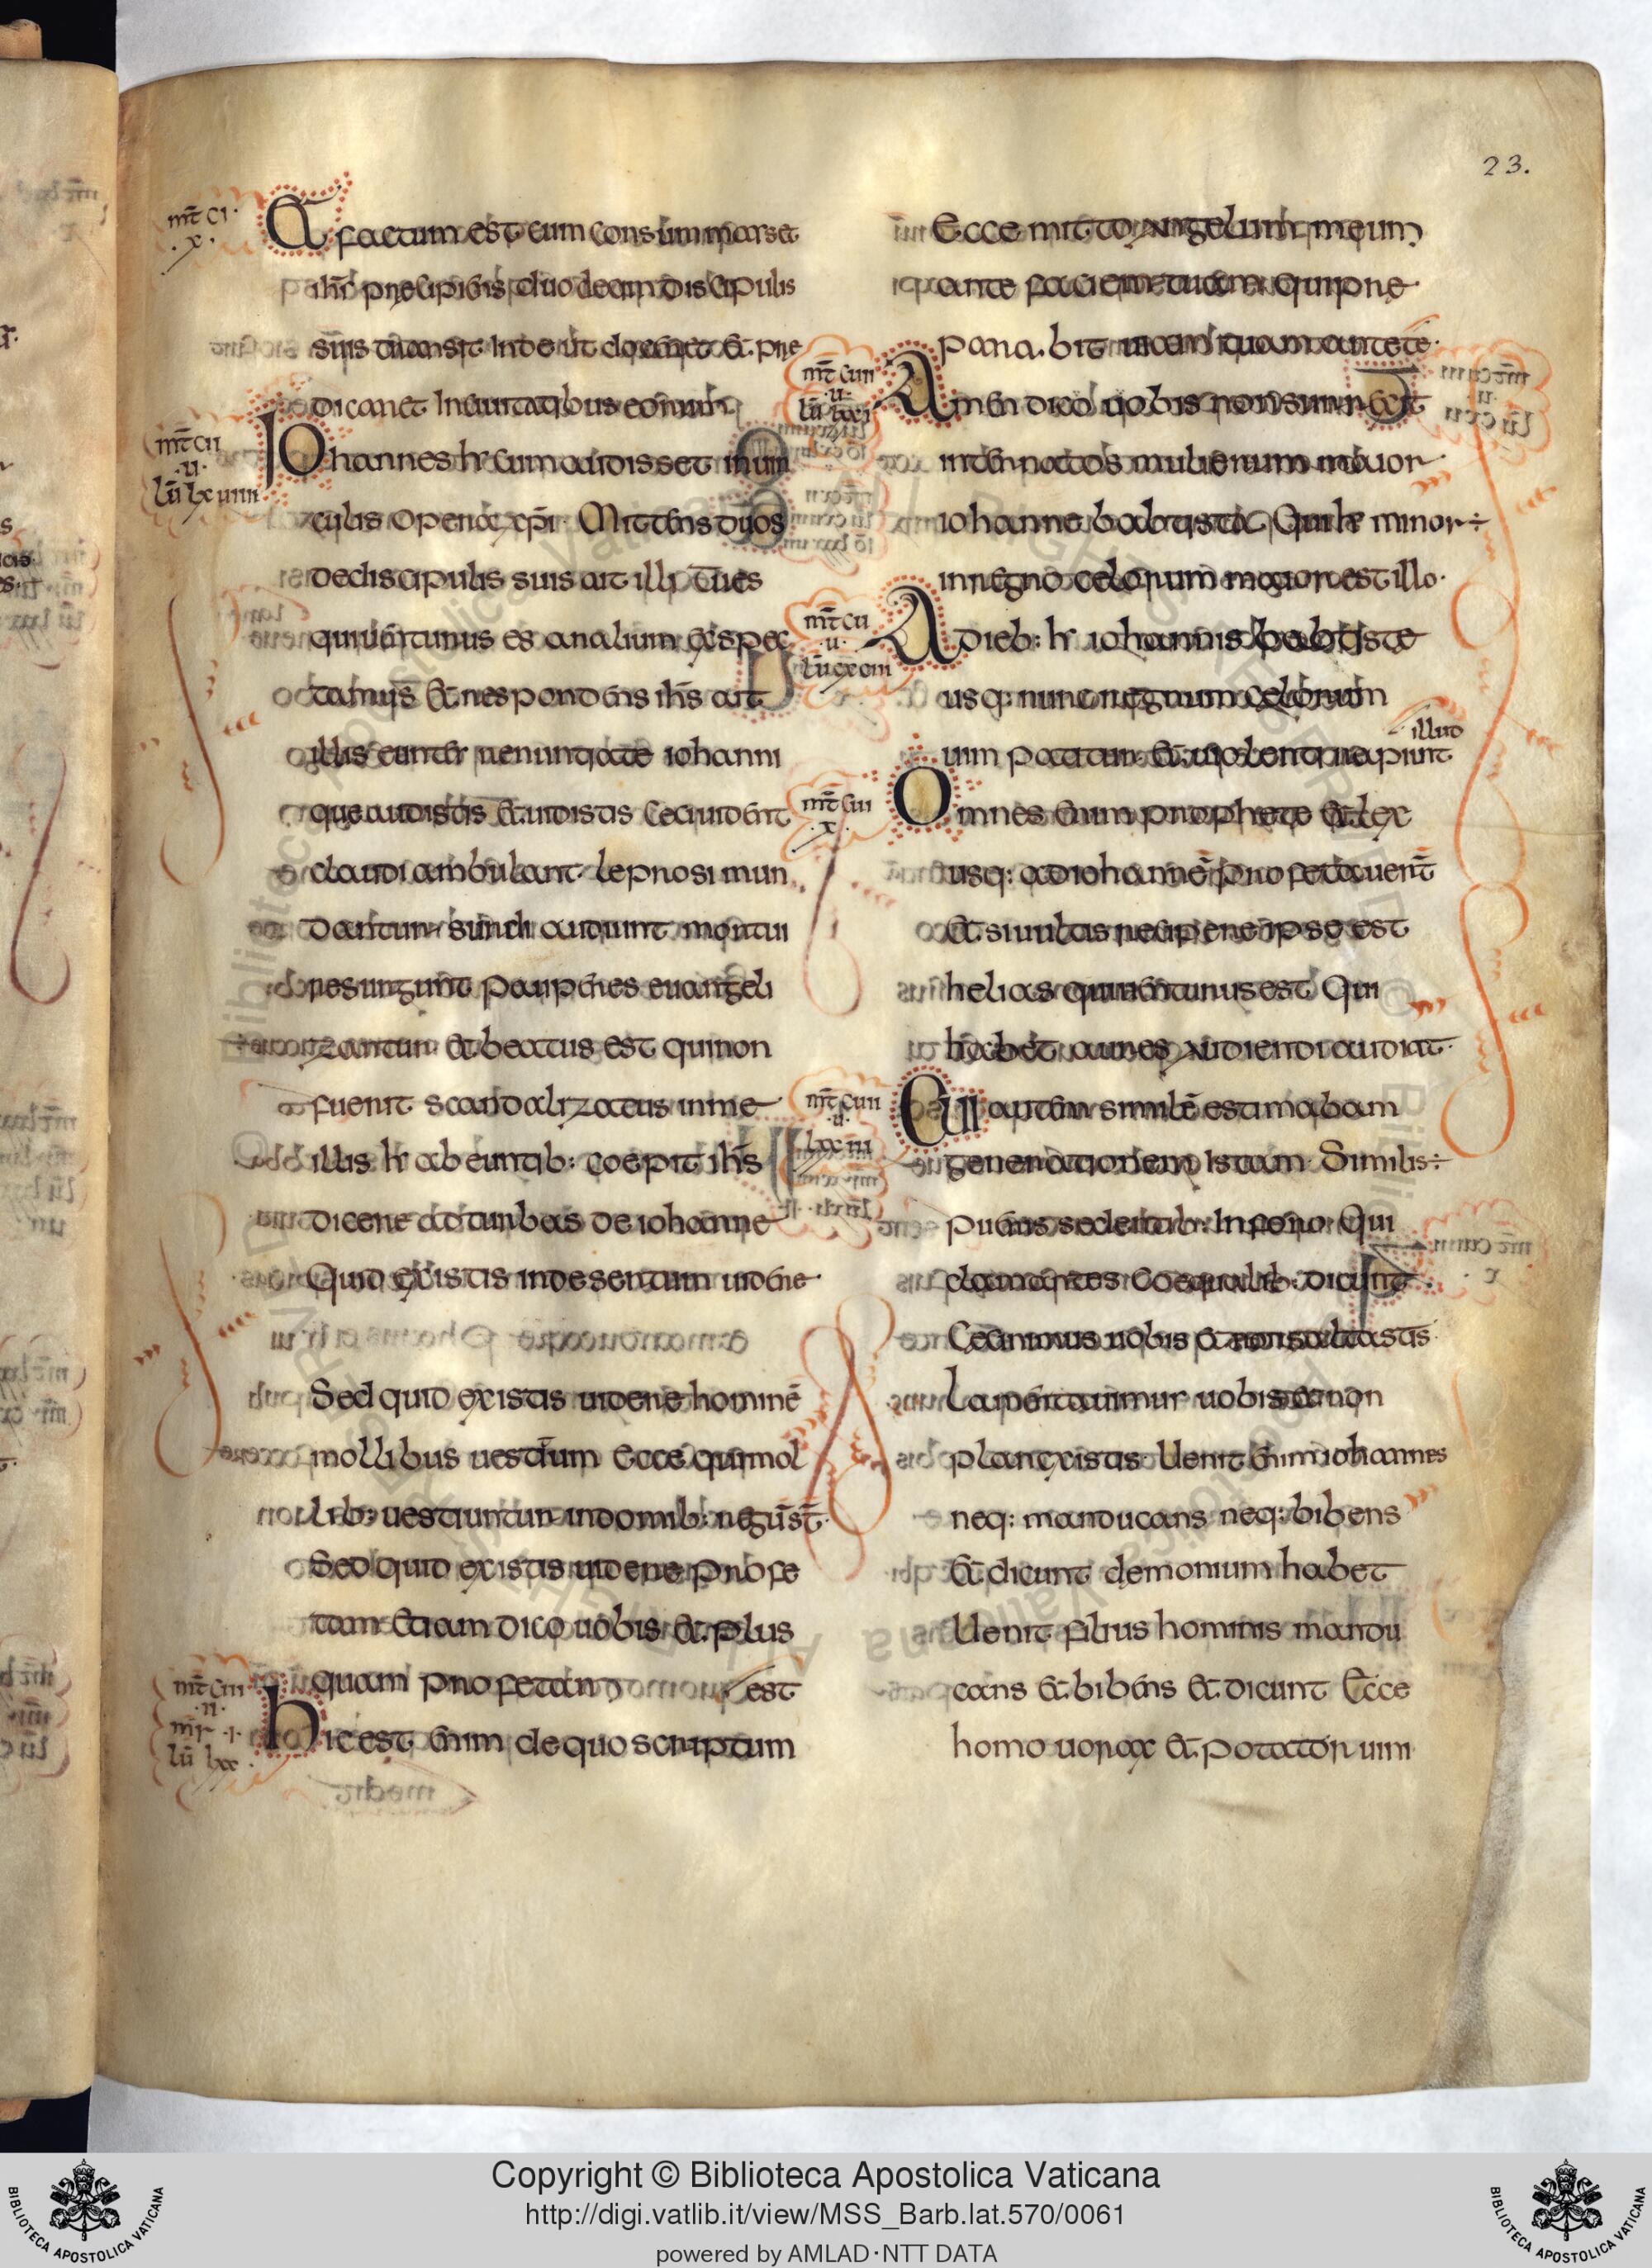 23.
mt̄ ci
x
Et̄ factum est cum consummarset
ihs̄ precipiens duodecim discipulis
suis transiit inde ut doceret et pre
dicaret in ciuitatibus eorum
mt̄ cii
u
lū lxuiiii
Iohannes hr cum audisset in uin
culis opera xp̄i Mittens duos
de discipulis suis ait illi Tu es
qui uenturus es an alium expec
tamus Et respondens ihs̄ ait
illis euntes renuntiate iohanni
que audistis et uidistis Ceci uident
claudi ambulant leprosi mun
dantur surdi audiunt mortui
resurgunt pauperes euangeli
zantur et beatus est qui non
fuerit scandalizatus in me
illis hr abeuntib: coepit ihs̄
dicere ad turbas de iohanne
Quid existis in desertum uidere
Sed quid existis uidere hominē
mollibus uestitum Ecce qui mol
lib: uestiuntur in domib: regū st̄
Sed quid existis uidere profe
tam Etiam dico uobis et plus
quam profetam est
mt̄ ciii
ii
mr i
lū lxx
hic est enim de quo scriptum
Ecce mitto angelum meum
ante faciem tuam qui pre
parabit uiam tuam ante te
mt̄ ciiii
u
lū lxxi
Amen dico uobis non surrexit
inter natos mulierum maior
iohanne babtista Qui hr minor ÷
in regno celorum maior est illo
mt̄ cu
u
lū cxciii
A dieb: hr iohannis babtiste
usq: nunc regnum celorum
uim patitur et uiolenti rapiunt
illud
mt̄ cui
x
Omnes enim prophete et lex
usq: ad iohannē profetauer̄t
Et si uultis recipere ipse est
helias qui uenturus est Qui
habet aures audiendi audiat
mt̄ cuii
u
lxxiii
Cui autem similē estimabam
generationem istam Similis ÷
pueris sedentib: in foro Qui
clamantes coequalib: dicunt
Cecinimus uobis et non saltastis
Lamentauimur uobis et non
planxistis Uenit enim iohannes
neq: manducans neq: bibens
Et dicunt demonium habet
Uenit filius hominis mandu
cans et bibens et dicunt Ecce
homo uorax et potator uini
Copyright © Biblioteca Apostolica Vaticana
http://digi.vatlib.it/view/MSS_Barb.lat.570/0061
powered by AMLAD·NTT DATA
BIBLIOTECA APOSTOLICA VATICANA
BIBLIOTECA APOSTOLICA VATICANA